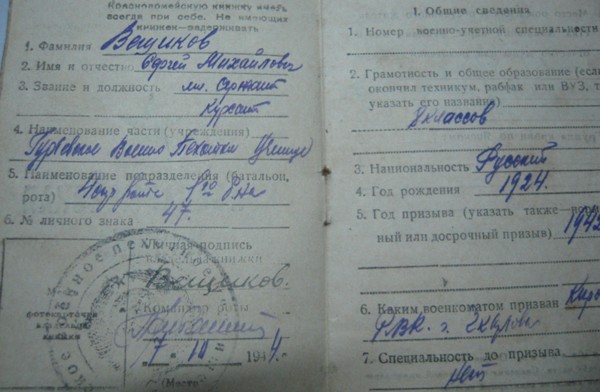 Красноармейскую книжку иметь
всегда при себе. Не имеющих
книжек—задерживать
1. Фамилия Ващиков
2. Имя и отчество Сергей Михайлович
3. Звание и должность мл. сержант
Курсант
4. Наименование части (учреждения)
Военно Пехотное Училище
5. Наименование подразделения (батальон,
рота)
6. № личного знака 47.
Личная подпись
владельца книжки
Ващиков.
Командир роты
7 · 10 1944.
(Место
фотокарточки
владельца
книжки
I. Общие сведения
1. Номер военно-учетной специальности
2. Грамотность и общее образование (если
окончил техникум, рабфак или ВУЗ, т
указать его название)
8 классов
3. Национальность Русский
4. Год рождения 1924.
5. Год призыва (указать также
ный или досрочный призыв) 1942
6. Каким военкоматом призван
РВК. г.
7. Специальность до призыва
нет